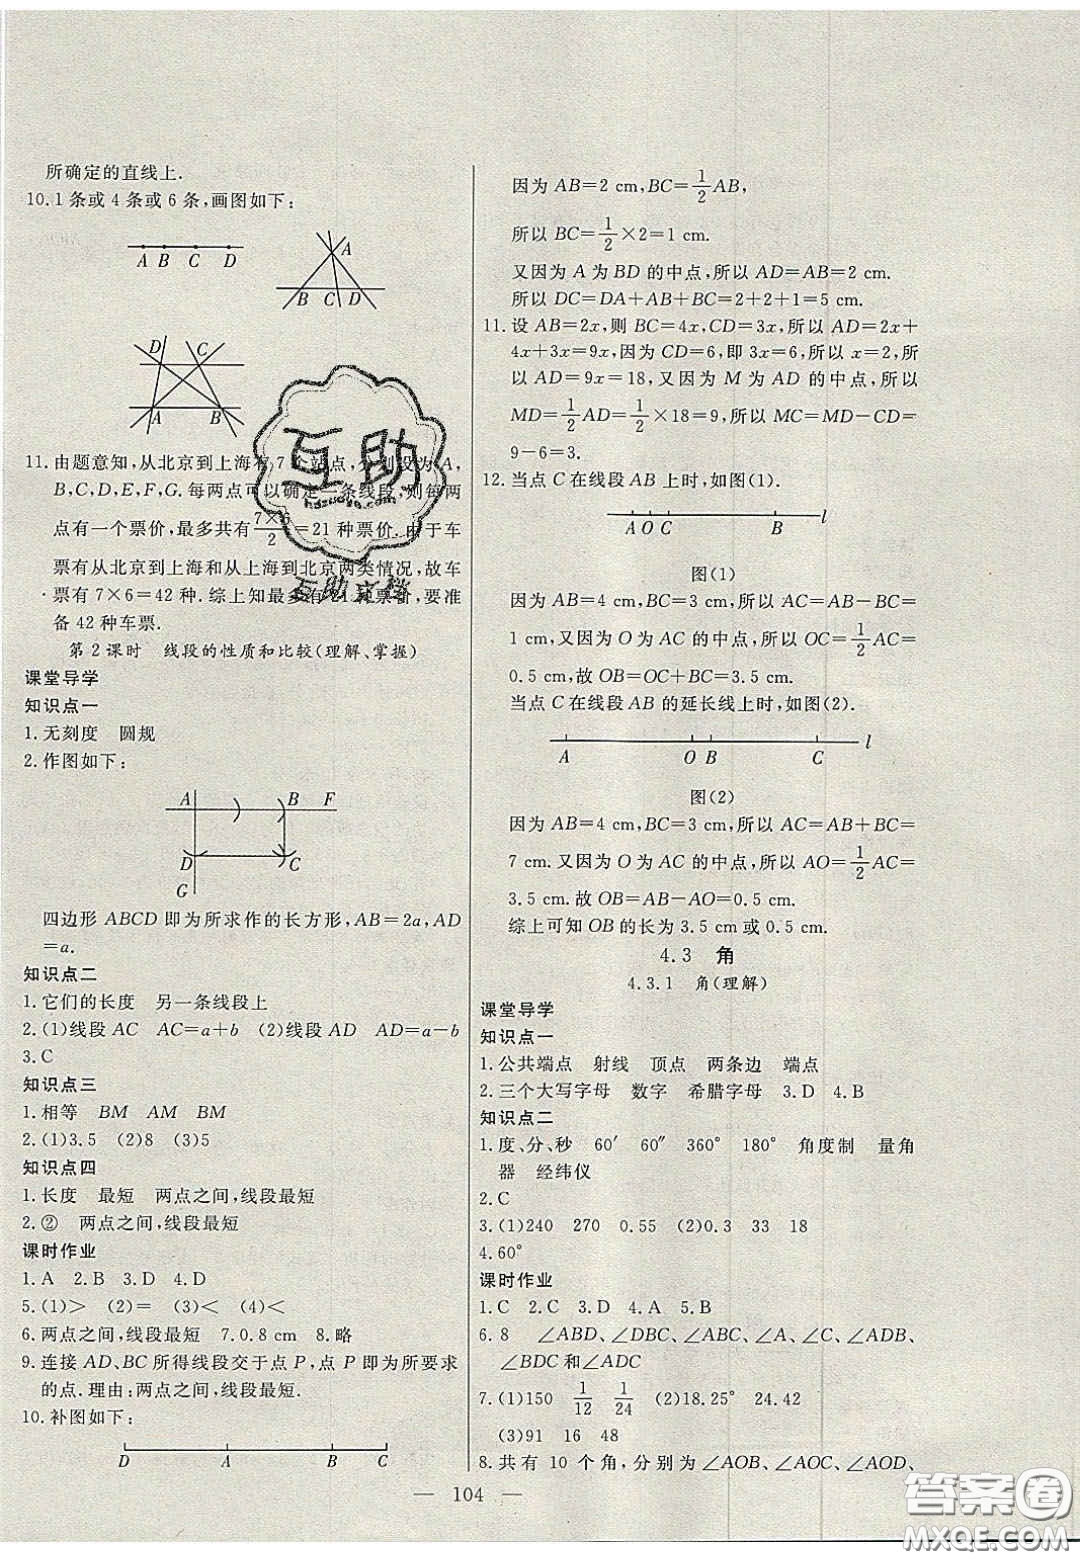 所确定的直线上.
10.1 条或 4 条或 6 条,画图如下:
A B C D
A
B C D
D C
A B
11.由题意知,从北京到上海有 7 个站点,分别设为 A,
B,C,D,E,F,G.每两点可以确定一条线段,则每两
点有一个票价,最多共有 7×6/2 =21 种票价.由于车
票有从北京到上海和从上海到北京两类情况,故车
票有 7×6=42 种.综上知最多有 21 种票价,要准
备 42 种车票.
第 2 课时 线段的性质和比较(理解、掌握)
课堂导学
知识点一
1.无刻度 圆规
2.作图如下:
A B F
D C
G
四边形 ABCD 即为所求作的长方形,AB=2a,AD
=a.
知识点二
1.它们的长度 另一条线段上
2.(1)线段 AC AC=a+b (2)线段 AD AD=a-b
3.C
知识点三
1.相等 BM AM BM
2.(1)3.5 (2)8 (3)5
知识点四
1.长度 最短 两点之间,线段最短
2.② 两点之间,线段最短
课时作业
1.A 2.B 3.D 4.D
5.(1)> (2)= (3)< (4)<
6.两点之间,线段最短 7.0.8 cm 8.略
9.连接 AD、BC 所得线段交于点 P,点 P 即为所要求
的点.理由:两点之间,线段最短.
10.补图如下:
D A B C
因为 AB=2 cm,BC=1/2 AB,
所以 BC=1/2×2=1 cm.
又因为 A 为 BD 的中点,所以 AD=AB=2 cm.
所以 DC=DA+AB+BC=2+2+1=5 cm.
11.设 AB=2x,则 BC=4x,CD=3x,所以 AD=2x+
4x+3x=9x,因为 CD=6,即 3x=6,所以 x=2,所
以 AD=9x=18,又因为 M 为 AD 的中点,所以
MD=1/2 AD=1/2×18=9,所以 MC=MD-CD=
9-6=3.
12.当点 C 在线段 AB 上时,如图(1).
A O C B l
图(1)
因为 AB=4 cm,BC=3 cm,所以 AC=AB-BC=
1 cm,又因为 O 为 AC 的中点,所以 OC=1/2 AC=
0.5 cm,故 OB=OC+BC=3.5 cm.
当点 C 在线段 AB 的延长线上时,如图(2).
A O B C l
图(2)
因为 AB=4 cm,BC=3 cm,所以 AC=AB+BC=
7 cm.又因为 O 为 AC 的中点,所以 AO=1/2 AC=
3.5 cm.故 OB=AB-AO=0.5 cm.
综上可知 OB 的长为 3.5 cm 或 0.5 cm.
4.3 角
4.3.1 角(理解)
课堂导学
知识点一
1.公共端点 射线 顶点 两条边 端点
2.三个大写字母 数字 希腊字母 3.D 4.B
知识点二
1.度、分、秒 60′ 60″ 360° 180° 角度制 量角
器 经纬仪
2.C
3.(1)240 270 0.55 (2)0.3 33 18
4.60°
课时作业
1.C 2.C 3.D 4.A 5.B
6.8 ∠ABD、∠DBC、∠ABC、∠A、∠C、∠ADB、
∠BDC 和∠ADC
7.(1)150 1/12 1/24 (2)18.25° 24.42
(3)91 16 48
8.共有 10 个角,分别为∠AOB、∠AOC、∠AOD、
— 104 —
互助
hdzuoye.com
互助文档
答案圈
MXQE.COM